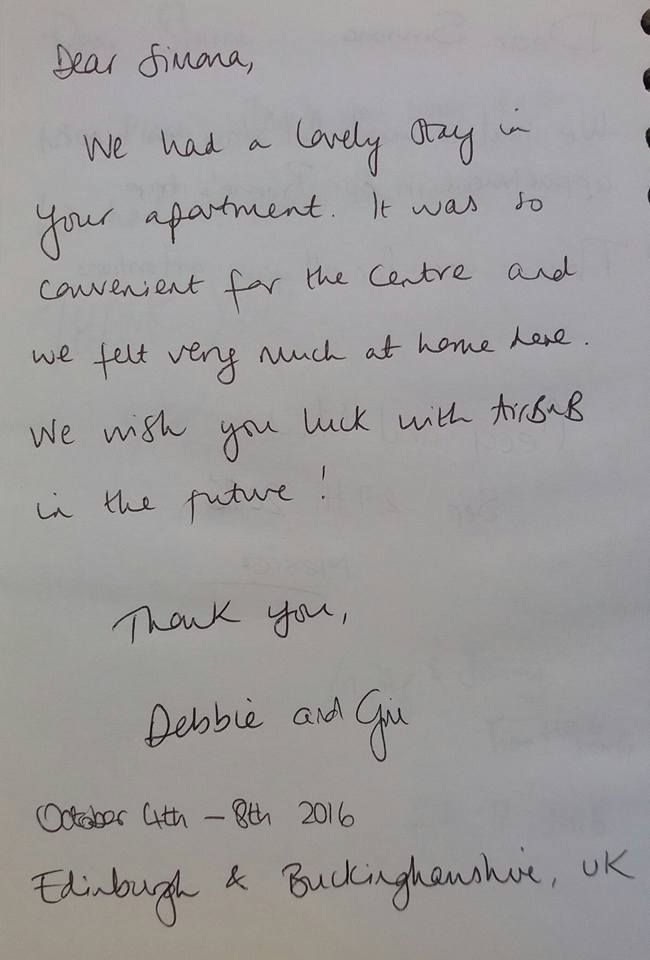 Dear Simona,
We had a lovely stay in
your apartment. It was so
convenient for the centre and
we felt very much at home here.
We wish you luck with AirBnB
in the future!
Thank you,
Debbie and Gill
October 4th – 8th 2016
Edinburgh & Buckinghamshire, UK